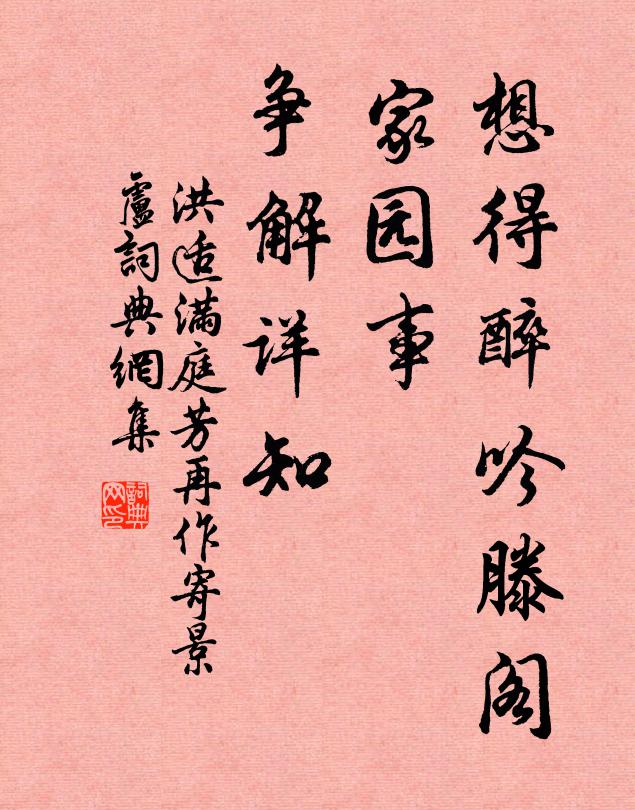 想得醉吟滕阁
家园事
争解详知
洪适满庭芳再作寄景
盧詞典網集
詞典
网印